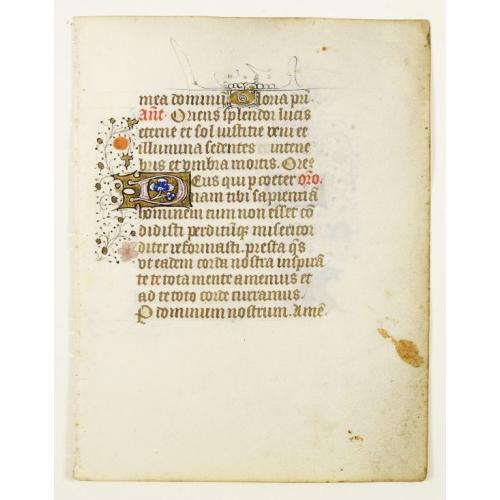 mea domini Gloria pri.
Añe. Oriens splendor lucis
eterne et sol iusticie veni et
illumina sedentes in tene
bris et vmbra mortis. Ore᷒
Deus qui p coeter Oro.
nam tibi sapientiā
hominem cum non esset cō
didisti perditūq; misericor
diter reformasti. presta q̄s
vt eadem corda nostra inspirā
te te tota mente amemus et
ad te toto corde curramus.
P dominum nostrum. Amē.